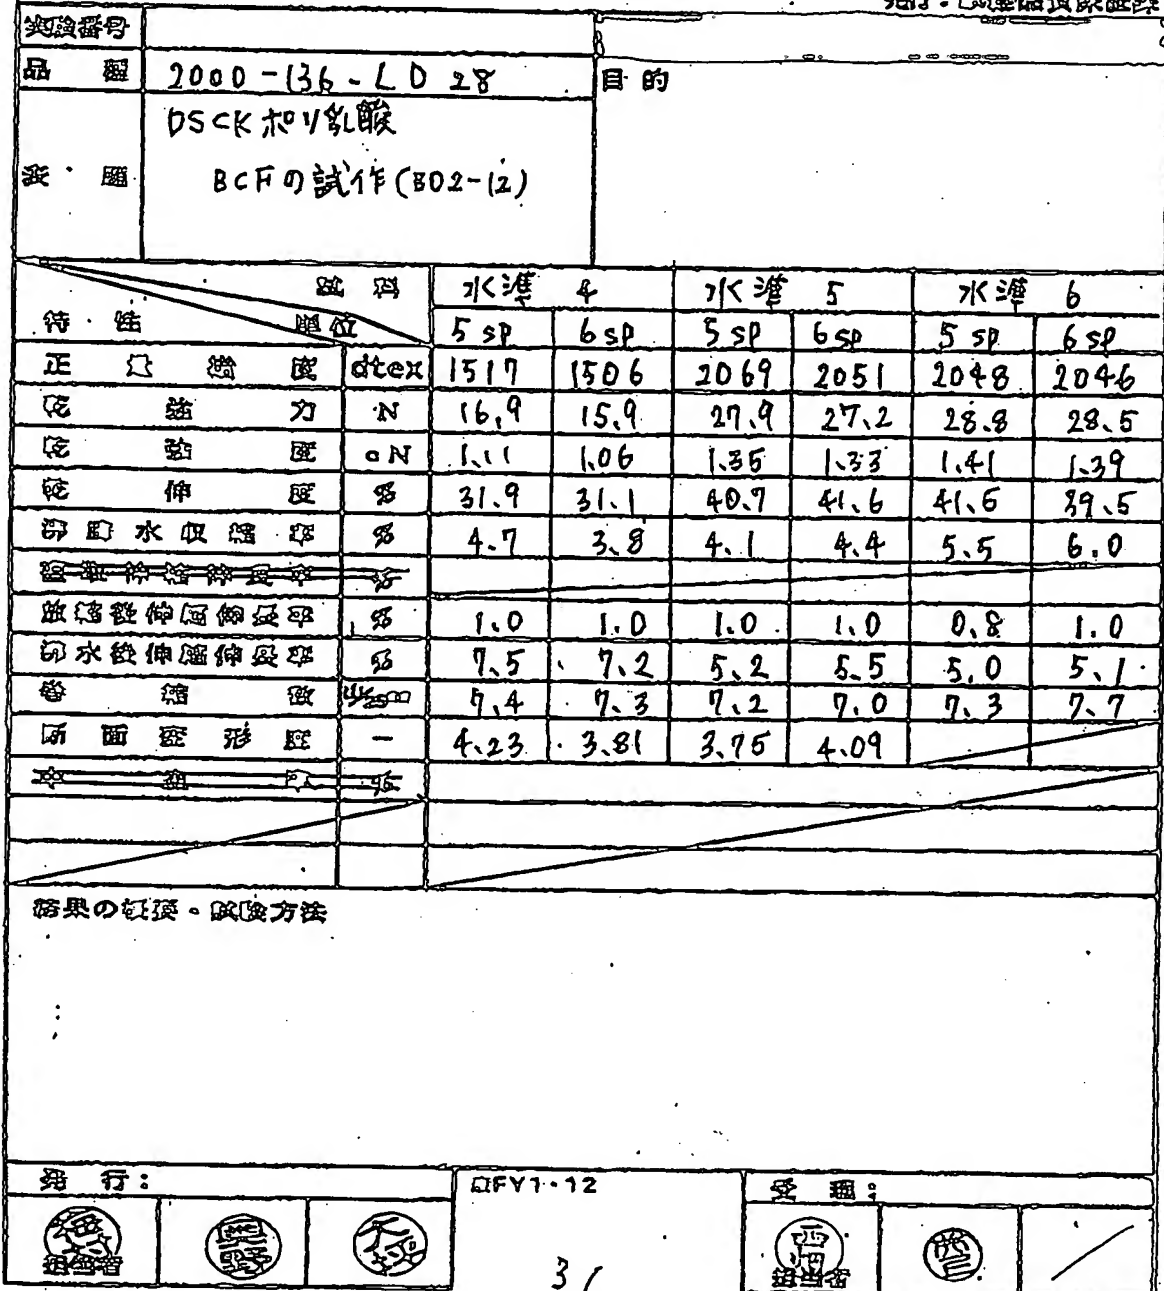 実験番号
品 種 2000-136-LD 28
目的
表・題 DSCKポリ乳酸
BCFの試作(B02-12)
試料 水準 4 水準 5 水準 6
特・性 単位 5 sp 6 sp 5 sp 6 sp 5 sp 6 sp
正 量 繊 度 dtex 1517 1506 2069 2051 2048 2046
乾 強 力 N 16.9 15.9 27.9 27.2 28.8 28.5
乾 強 度 cN 1.11 1.06 1.35 1.33 1.41 1.39
乾 伸 度 % 31.9 31.1 40.7 41.6 41.6 39.5
沸騰水収縮率 % 4.7 3.8 4.1 4.4 5.5 6.0
% 1.0 1.0 1.0 1.0 0.8 1.0
沸水後伸縮伸長率 % 7.5 7.2 5.2 5.5 5.0 5.1
巻 縮 数 7.4 7.3 7.2 7.0 7.3 7.7
断面変形度 - 4.23 3.81 3.75 4.09
結果の・試験方法
発 行: FY1・12 受 理:
奥野 西
担当者 担当者
31